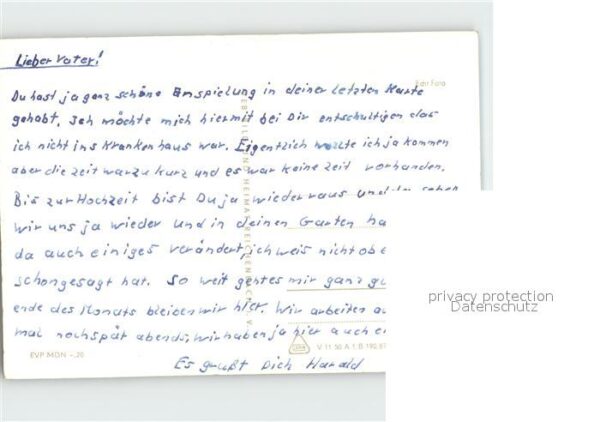 Lieber Vater!
Bild: Foto
Du hast ja ganz schöne Anspielung in deiner Letzten Karte
gehabt. Ich möchte mich hiermit bei Dir entschultigen das
ich nicht ins Krankenhaus war. Eigentzlich wollte ich ja kommen
aber die zeit war zu kurz und es war keine Zeit vorhanden.
Bis zur Hochzeit bist Du ja wieder raus und da sehen
wir uns ja wieder und in deinen Garten ha
da auch einiges verändert, ich weis nicht ob e
schon gesagt hat. So weit gehtes mir ganz gu
ende des Monats bleiben wir hier. Wir arbeiten a
mal noch spät abends, wir haben ja hier auch ei
Es grüßt Dich Harald
BILD UND HEIMAT REICHENBACH I. V.
EVP MDN -,20
V 11 50 A 1 B
privacy protection
Datenschutz